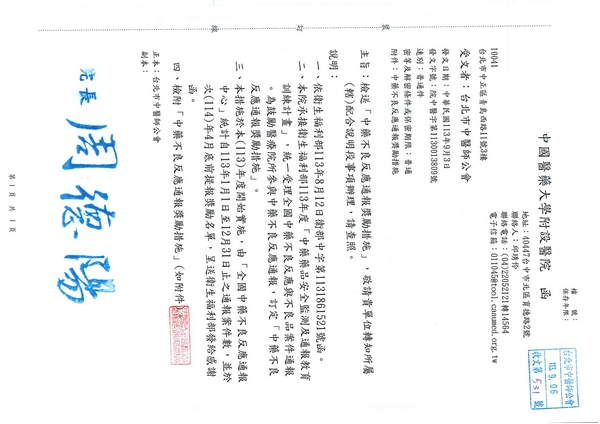 檔　號：
保存年限：
中國醫藥大學附設醫院　函
地址：40447台中市北區育德路2號
聯絡人：邱琦伶
聯絡電話：(04)22052121轉14564
電子信箱：011045@tool.caaumed.org.tw
台北市中醫師公會
113.9.06
收文第531號
10041
台北市中正區青島西路11號3樓
受文者：台北市中醫師公會
發文日期：中華民國113年9月3日
發文字號：院中醫字第1130013809號
速別：普通件
密等及解密條件或保密期限：普通
附件：中藥不良反應通報獎勵措施
主旨：檢送「中藥不良反應通報獎勵措施」，敬請貴單位轉知所屬
(轄)配合說明段事項辦理，請查照。
說明：
一、依衛生福利部113年8月12日衛部中字第1131861521號函。
二、本院承接衛生福利部113年度「中藥藥品安全監測及通報教育
訓練計畫」，統一受理全國中藥不良反應與不良品案件通報
。為鼓勵醫療院所參與中藥不良反應通報，訂定「中藥不良
反應通報獎勵措施」。
三、本措施於本(113)年度開始實施，由「全國中藥不良反應通報
中心」統計自113年1月1日至12月31日止之通報案件數，並於
次(114)年4月底前提報獎勵名單，呈送衛生福利部發給感謝
函。
四、檢附「中藥不良反應通報獎勵措施」(如附件
正本：台北市中醫師公會
副本：
院長 周德陽
第1頁 共1頁
裝
訂
線